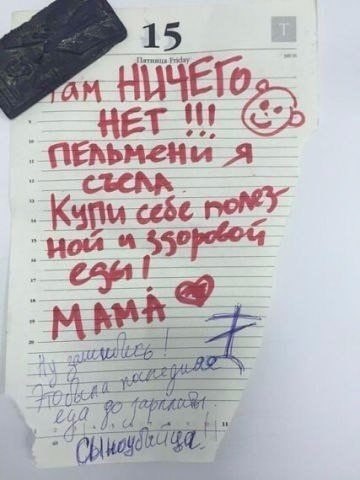 15
Пятница Friday
Там НИЧЕГО
НЕТ !!!
ПЕЛЬМЕНИ Я
СЪЕЛА
Купи себе полез-
ной и здоровой
еды!
МАМА
Ну зашибись!
Это была последняя
еда до зарплаты.
СЫНоубийца!
T